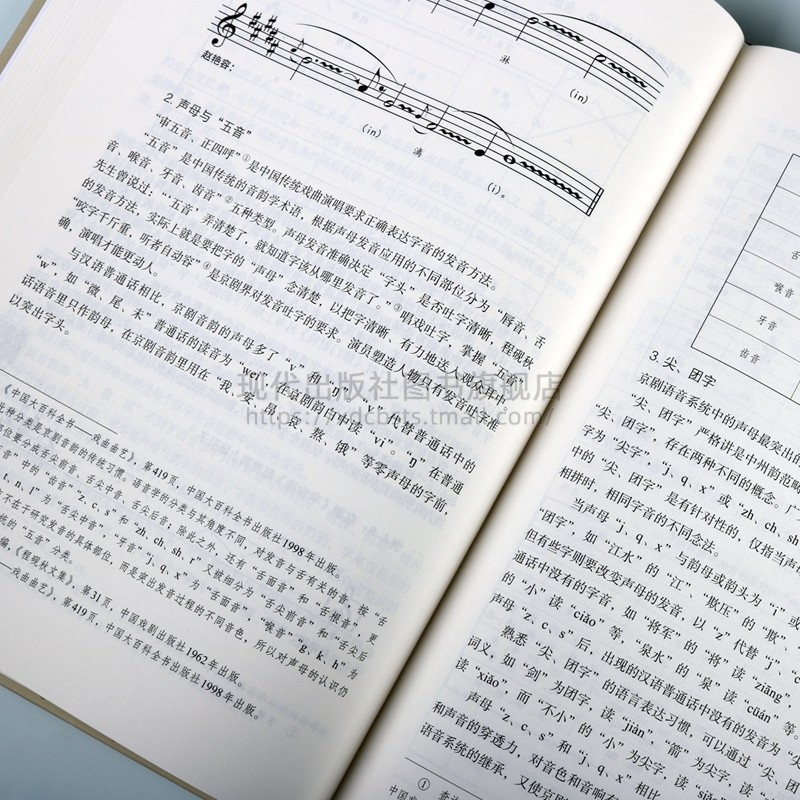 淋
(in)
赵艳容：
(in)
满
(i)。
2. 声母与“五音”
“审五音、正四呼”①是中国传统戏曲演唱要求正确表达字音的发音方法。
“五音”是中国传统的音韵学术语，根据声母发音应用的不同部位分为“唇音、舌
音、喉音、牙音、齿音”②五种类型。声母发音准确决定“字头”是否吐字清晰，程砚秋
先生曾说过：“‘五音’弄清楚了，就知道字该从哪里发音了。”③唱戏吐字，掌握“五音”
的发音方法，实际上就是要把字的“声母”念清楚，以把字清晰、有力地送入观众耳中。
“咬字千斤重，听者自动容”④是京剧界对发音吐字的要求。演员塑造人物只有发音吐字准
确，演唱才能更动人。
与汉语普通话相比，京剧音韵的声母多了“v”“ŋ”，“v”代替普通话中的
“w”，如“微、尾、未”普通话的读音为“wei”，在京剧韵白中读“vi”。“ŋ”在普通
话语音里只作韵母，在京剧音韵里用在“我、爱、昂、哀、熬、饿”等零声母的字前，
以突出字头。
《中国大百科全书——戏曲曲艺》，第419页，中国大百科全书出版社1998年出版。
五种分类是京剧音韵的传统习惯。语言学的分类与其角度不同，对发音与舌有关的音，按“舌
部位要分成舌尖前音、舌尖中音、舌尖后音；除此之外，还有“舌面音”和“舌根音”，更
音”中的“齿音”“z, c, s”和“zh, ch, sh, r”又被细分为“舌尖前音”和“舌尖后
t, n, l”为“舌尖中音”，“牙音”“j, q, x”为“舌面音”，“喉音”“g, k, h”为
不在于研究发音的具体部位，而是突出发音过程的不同音色，所以对声母的认识仍
统的“五音”分类。
编，《程砚秋文集》，第31页，中国戏剧出版社1962年出版。
戏曲曲艺》，第419页，中国大百科全书出版社1998年出版。
舌
喉音
牙音
齿音
3. 尖、团字
京剧语音系统中的声母最突出的
“尖、团字”严格讲是中州韵范畴
“尖、团字”存在两种不同的概念。广
字为“尖字”，“j, q, x”或“zh, ch, sh
中的“尖、团字”是有针对性的，仅指当声母
当声母“j, q, x”与韵母或韵头为“i”或
相拼时，相同字音的不同念法。
“团字”如“江水”的“江”、“欺压”的“欺”、
但有些字则要改变声母的发音，以“z”代替“j”、“c”
通话中没有的字音，如“将军”的“将”读“ziāng”，
的“小”读“ciǎo”等“泉水”的“泉”读“cüán”等。
声母“z、c、s”后，出现的汉语普通话中没有的发音为“尖
熟悉“尖、团字”的语言表达习惯，可以通过“尖、团
词义，如“剑”为团字，读“jiàn”，“箭”为尖字，读
读“xiǎo”，而“不小”的“小”为尖字，读“siǎo
声母“z、c、s”和“j、q、x”相比
和声音的穿透力，对音色和音响有
语音系统的继承，又使京剧
①
现代出版社图书旗舰店
https://xdcbsts.tmall.com/